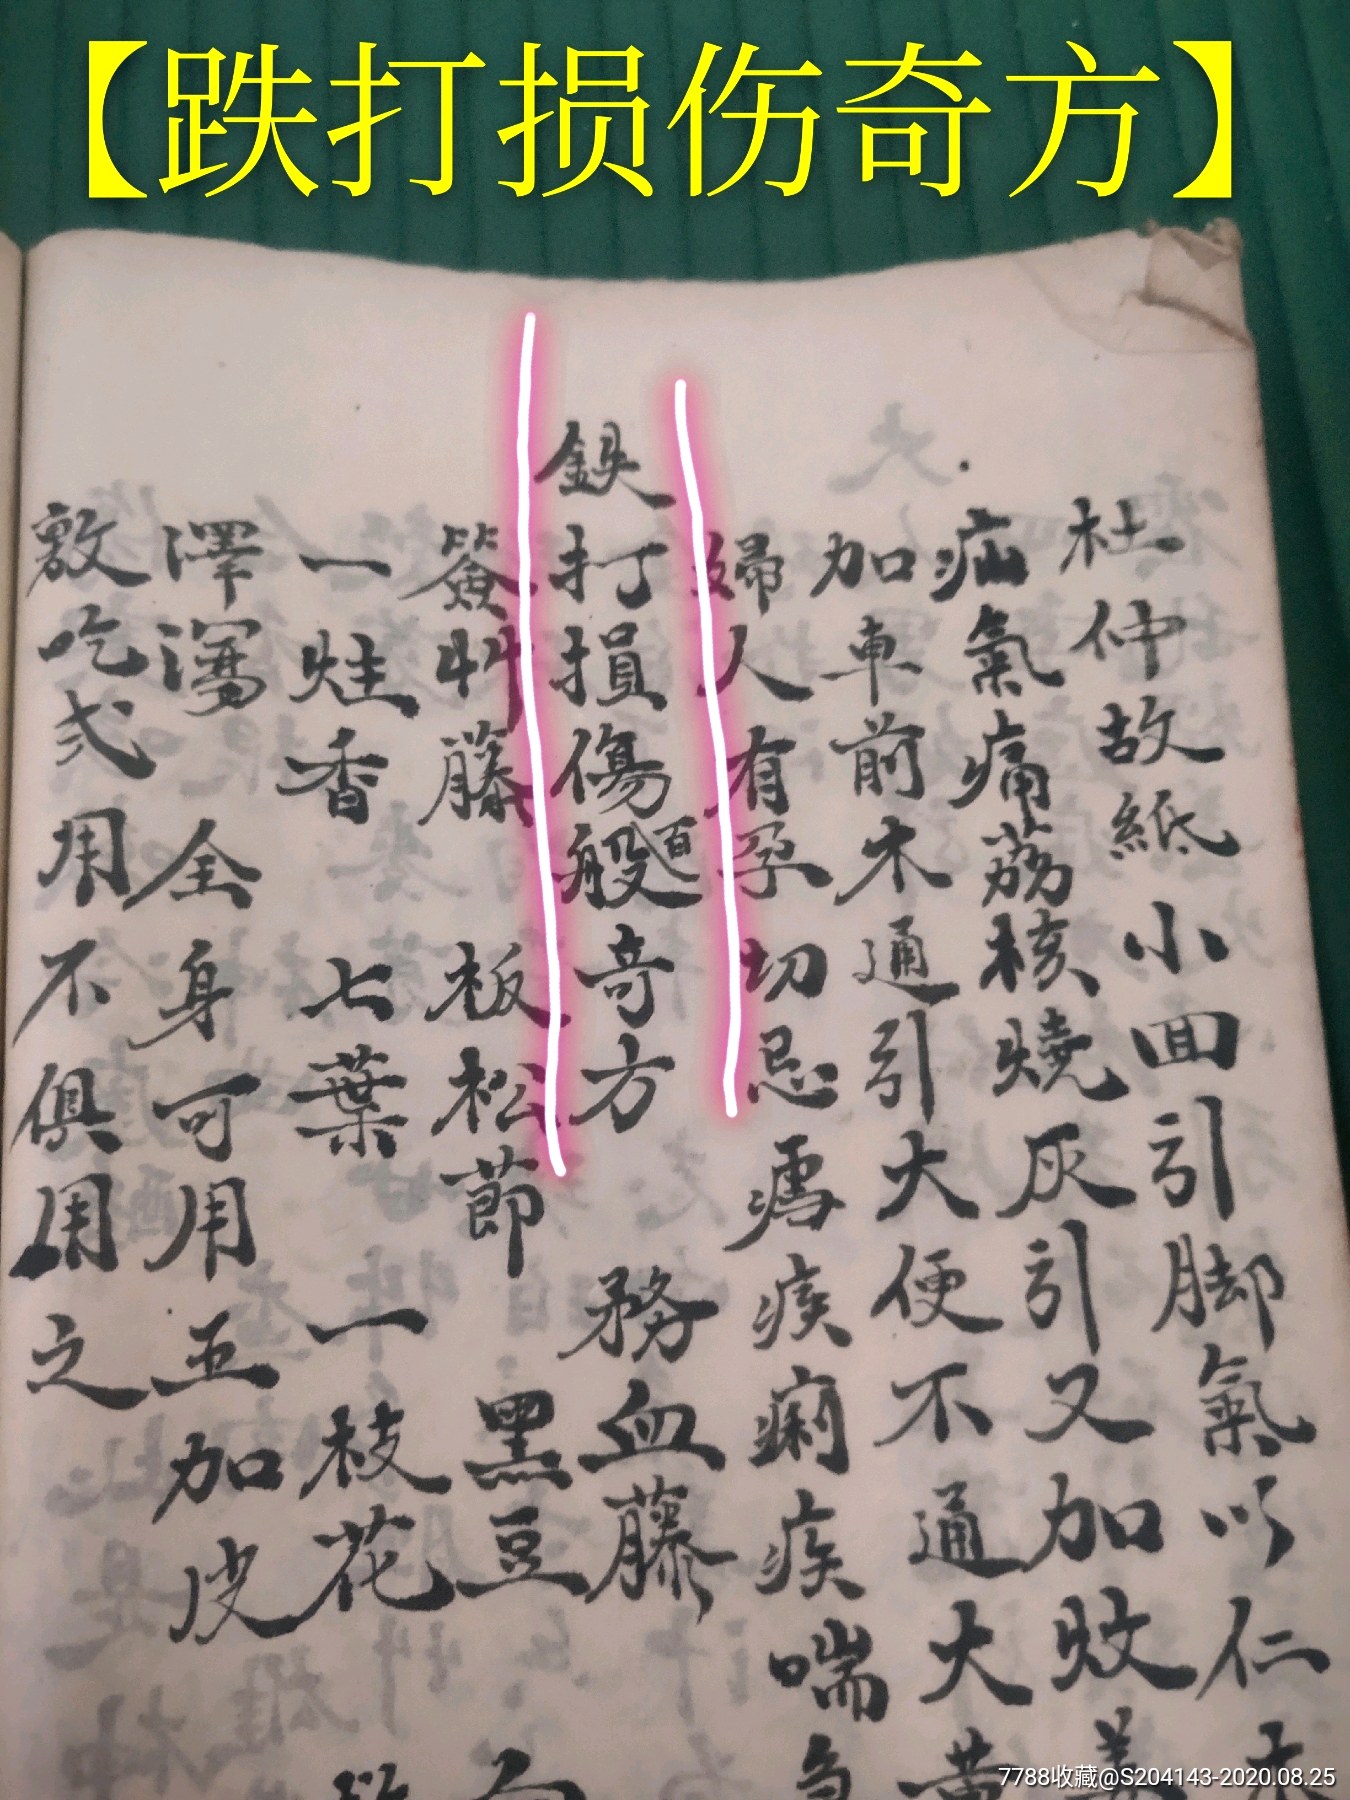 【跌打损伤奇方】
杜仲故紙小囬引脚氣以仁
疝氣痛荔核燒灰引又加
加車前木通引大便不通大黄
婦人有孕切忌瘧疾痢疾喘急
鉄打損傷百般奇方 務血藤
簽艸藤 板松節 黑豆
一炷香 七葉一枝花
澤瀉 全身可用五加皮
敷吃弍用不俱用之
7788收藏@S204143-2020.08.25